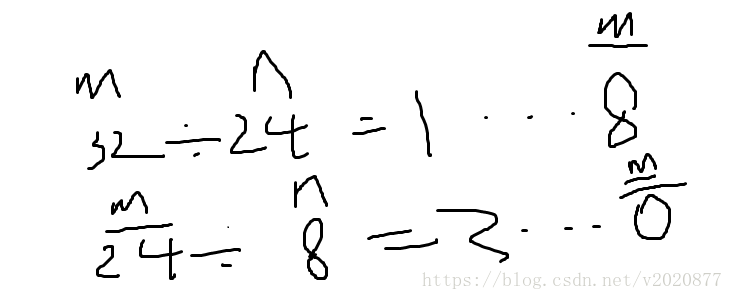 m
m n
32÷24=1···8
m n m
24÷8=3···0
https://blog.csdn.net/v2020877